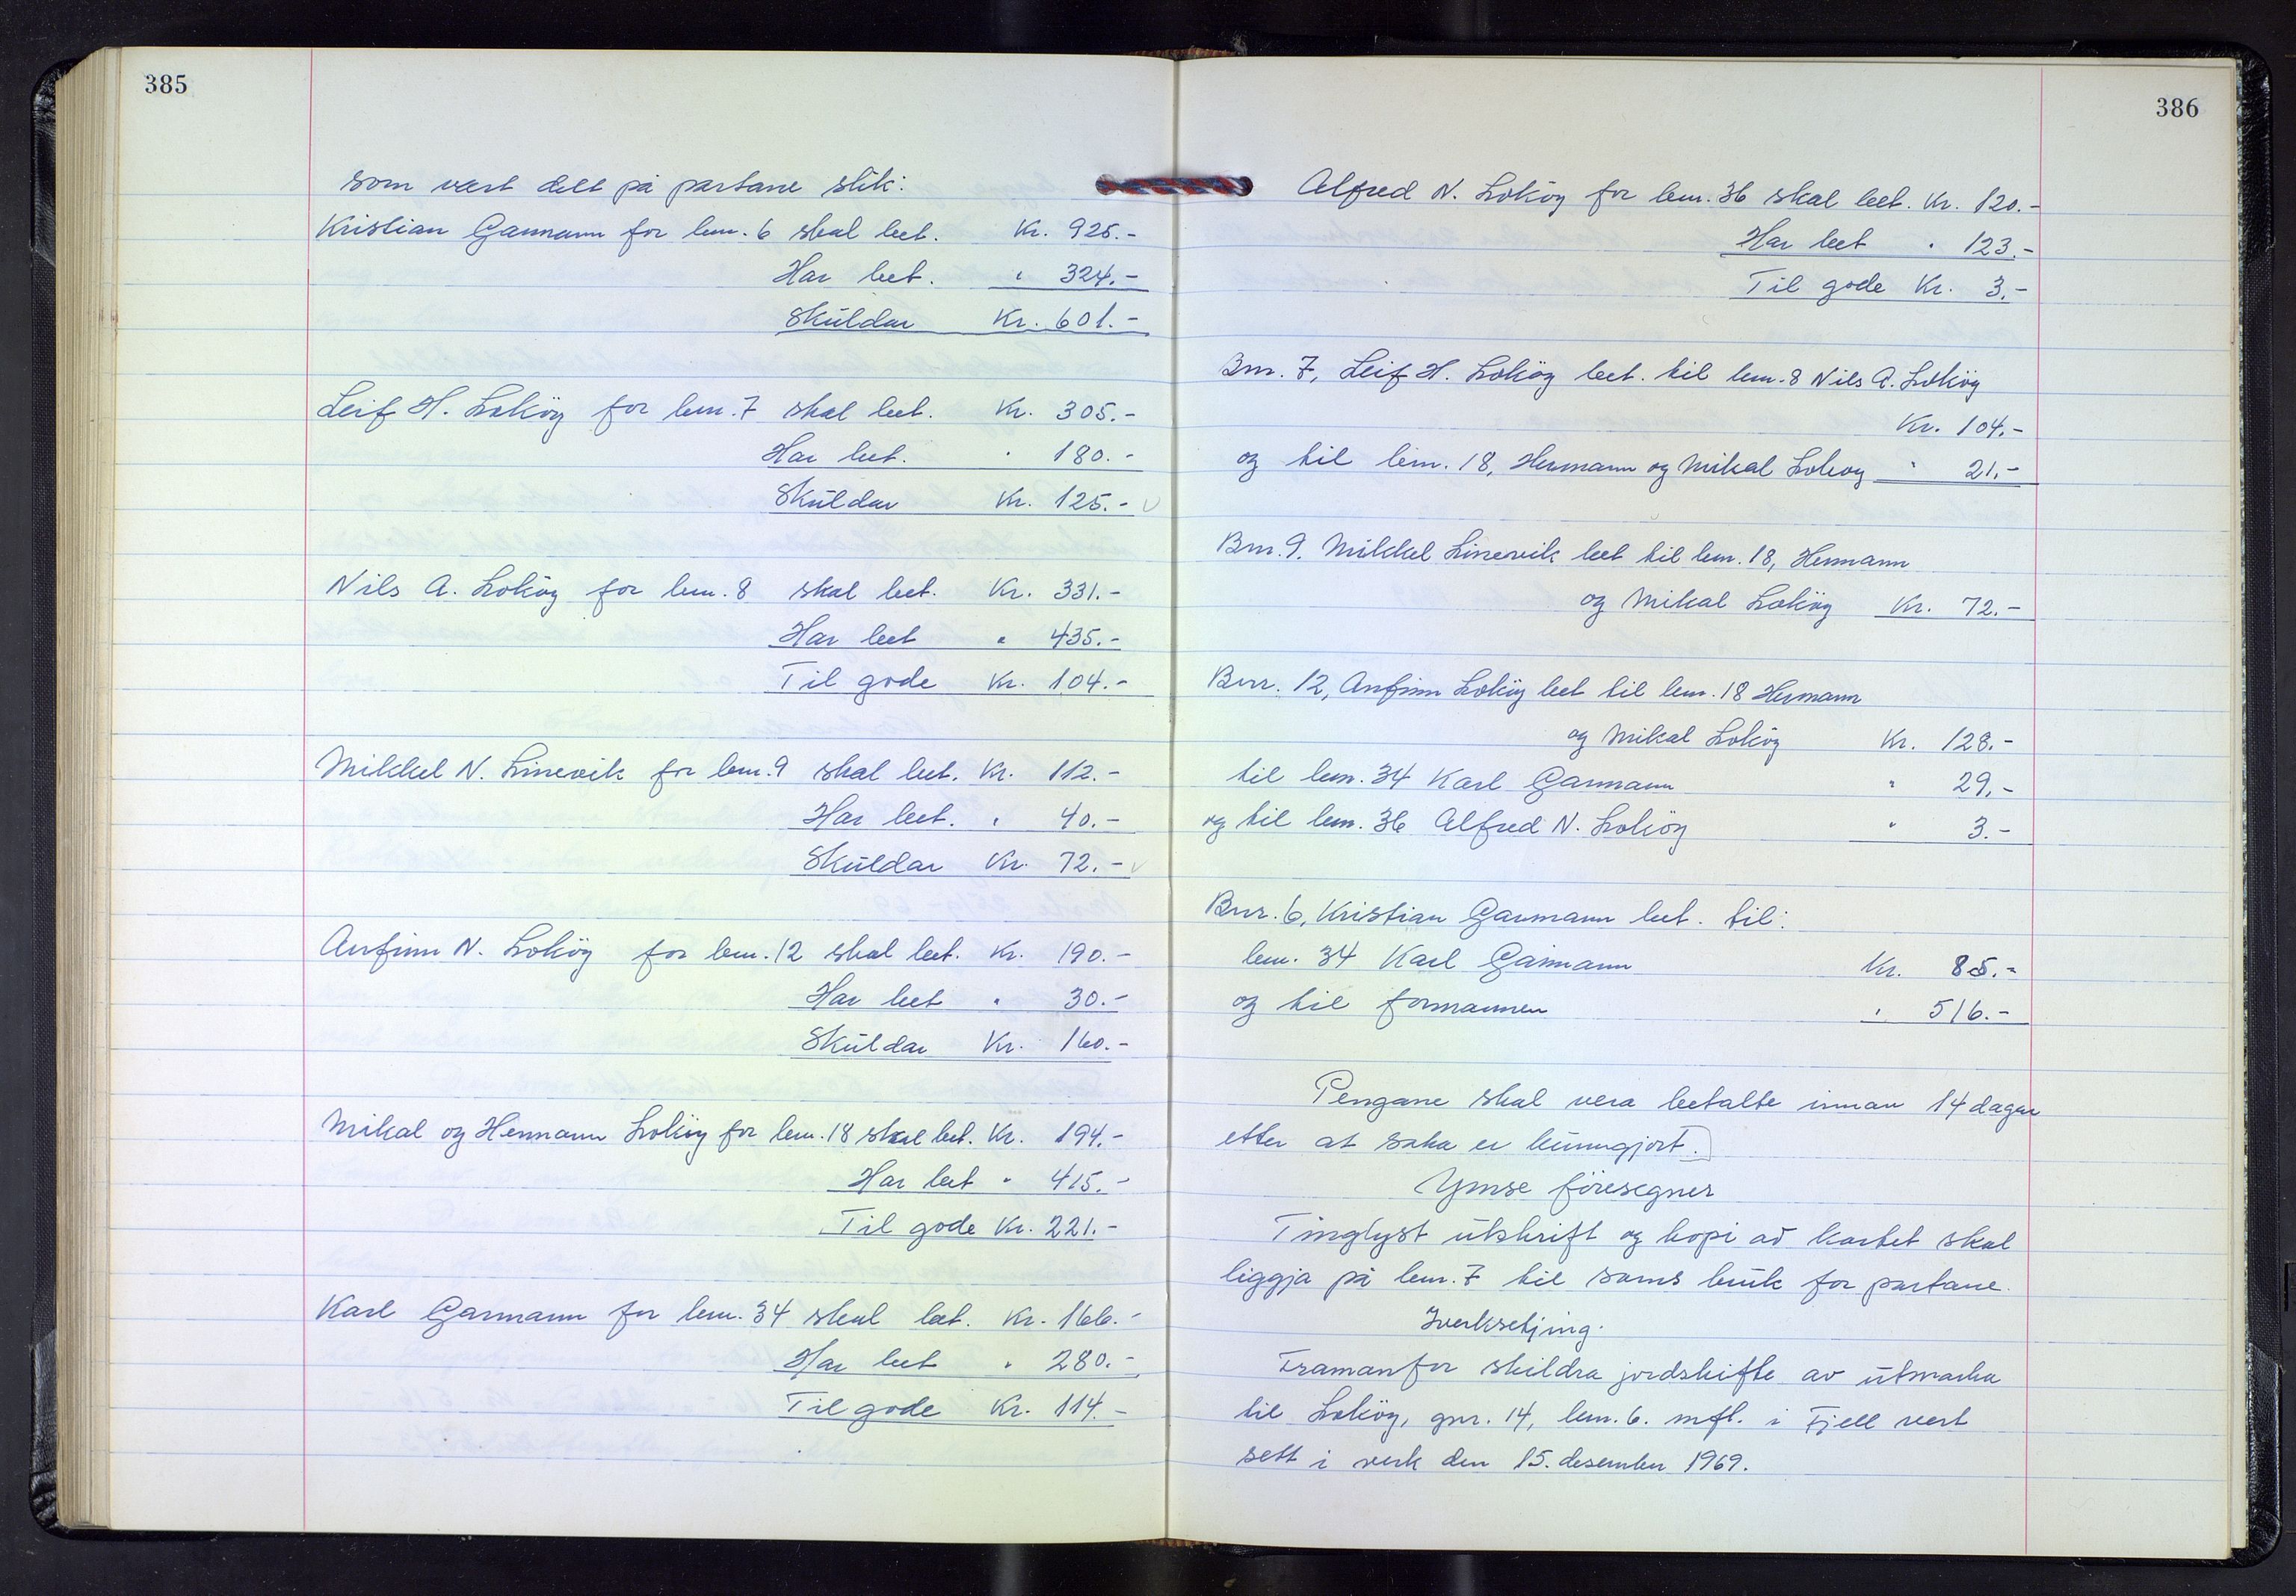 385
som vert delt på partane slik:
Kristian Garmann for bnr. 6 skal bet. Kr. 925.-
Har bet. " 324.-
Skuldar Kr. 601.-
Leif H. Lokøy for bnr. 7 skal bet. Kr. 305.-
Har bet. " 180.-
Skuldar Kr. 125.-
Nils A. Lokøy for bnr. 8 skal bet. Kr. 331.-
Har bet " 435.-
Til gode Kr. 104.-
Mikkel N. Linevik for bnr. 9 skal bet. Kr. 112.-
Har bet. " 40.-
Skuldar Kr. 72.-
Anfinn N. Lokøy for bnr. 12 skal bet. Kr. 190.-
Har bet " 30.-
Skuldar Kr. 160.-
Mikal og Hermann Lokøy for bnr. 18 skal bet. Kr. 194.-
Har bet " 415.-
Til gode Kr. 221.-
Karl Garmann for bnr. 34 skal bet. Kr. 166.-
Har bet " 280.-
Til gode Kr. 114.-
386
Alfred N. Lokøy for bnr. 36 skal bet. Kr. 120.-
Har bet " 123.-
Til gode Kr. 3.-
Bnr. 7, Leif H. Lokøy bet. til bnr. 8 Nils A. Lokøy
Kr. 104.-
og til bnr. 18, Hermann og Mikal Lokøy " 21.-
Bnr. 9. Mikkel Linevik bet til bnr. 18, Hermann
og Mikal Lokøy Kr. 72.-
Bnr. 12, Anfinn Lokøy bet til bnr. 18 Hermann
og Mikal Lokøy Kr. 128.-
til bnr. 34 Karl Garmann " 29.-
og til bnr. 36 Alfred N. Lokøy " 3.-
Bnr. 6, Kristian Garmann bet. til:
bnr. 34 Karl Garmann Kr. 85.-
og til formannen " 516.-
Pengane skal vera betalte innan 14 dagar
etter at saka er kunngjort.
Ymse føresegner
Tinglyst utskrift og kopi av kartet skal
liggja på bnr. 7 til sams bruk for partane.
Iverksetjing.
Framanfor skildra jordskifte av utmarka
til Lokøy, gnr. 14, bnr. 6. mfl. i Fjell vert
sett i verk den 15. desember 1969.